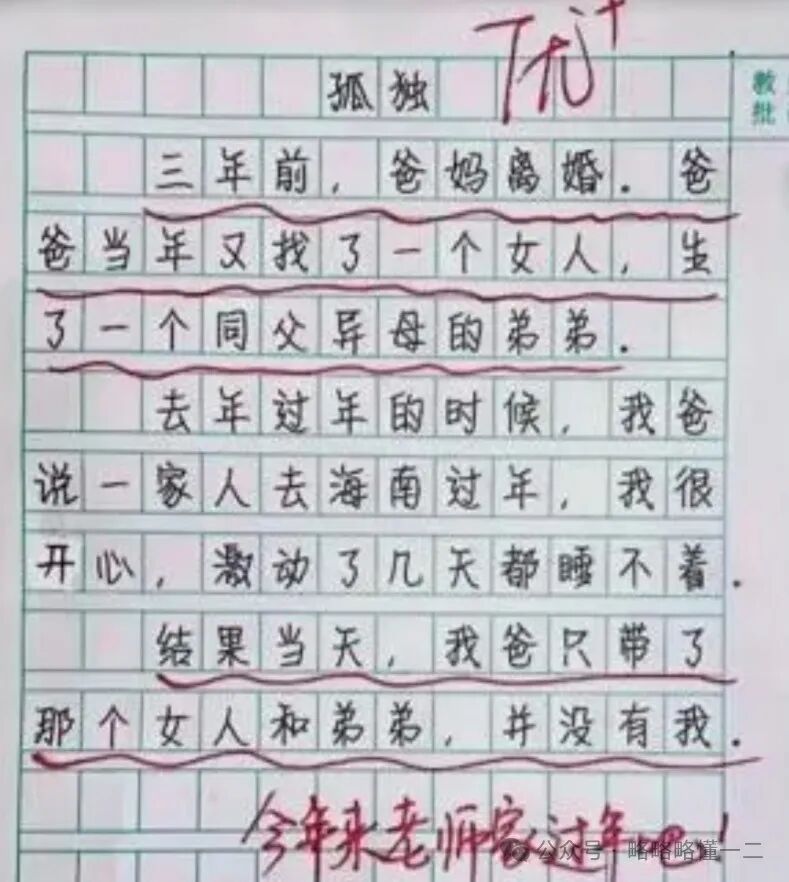 优+
孤独
三年前，爸妈离婚．爸
爸当年又找了一个女人，生
了一个同父异母的弟弟．
去年过年的时候，我爸
说一家人去海南过年，我很
开心，激动了几天都睡不着．
结果当天，我爸只带了
那个女人和弟弟，并没有我．
今年来老师家过年吧！
教
批
公众号·略略略懂一二